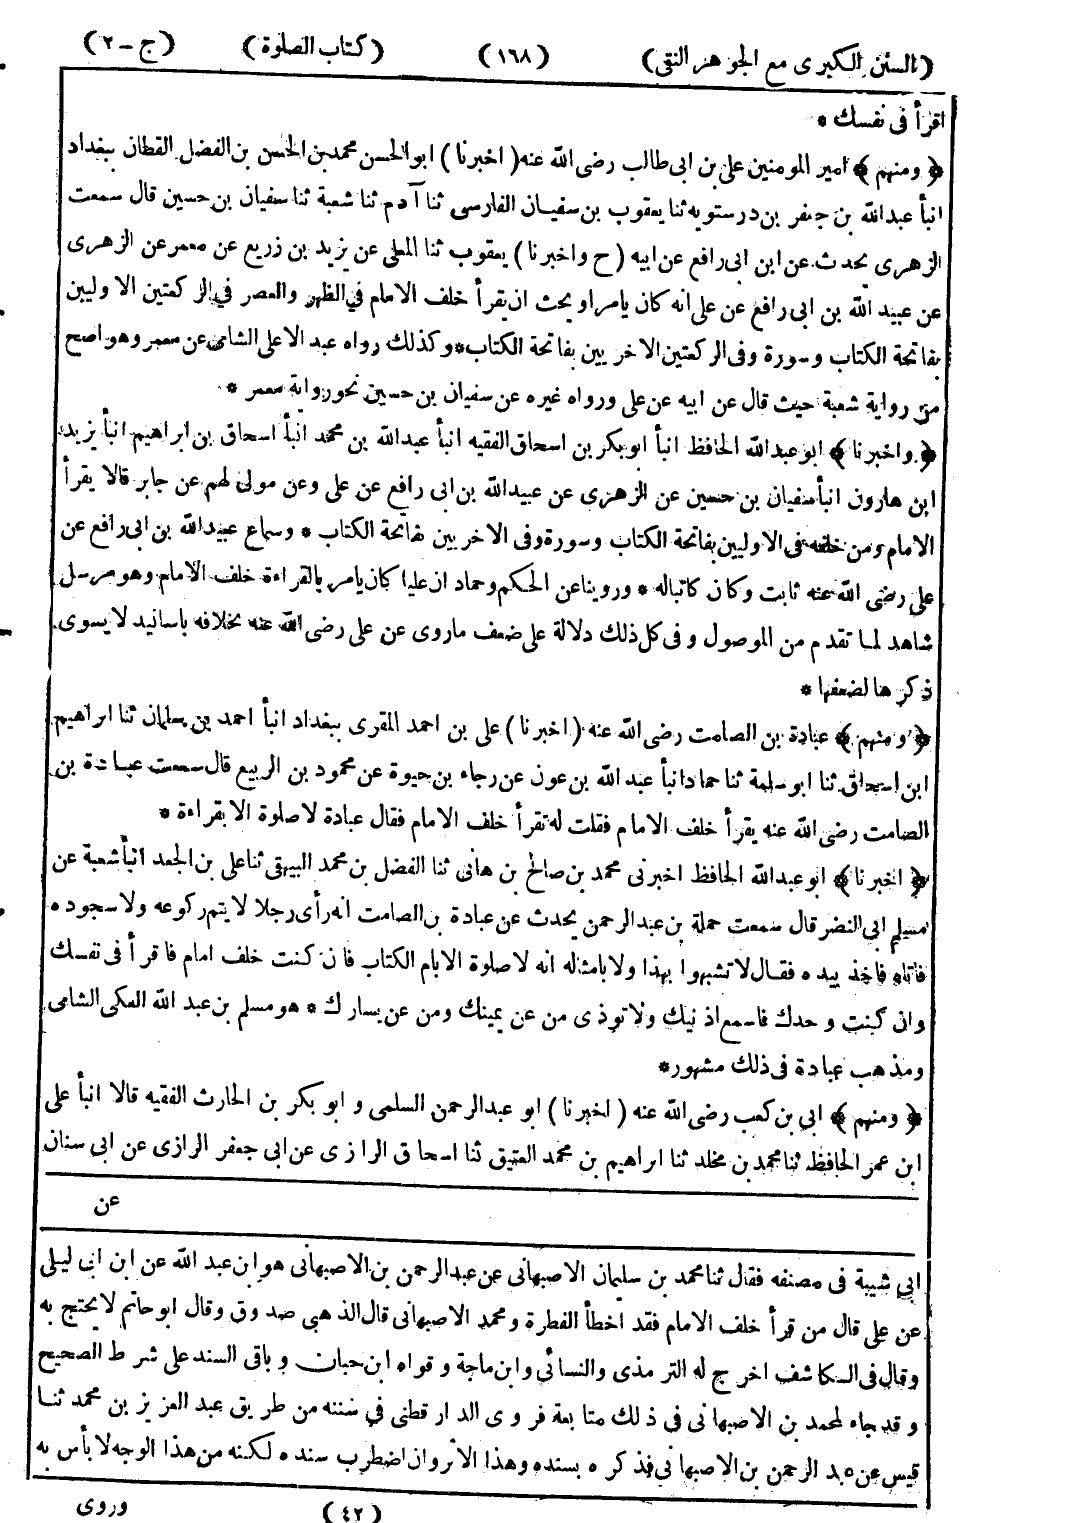 (السنن الكبرى مع الجوهر النقى) (١٦٨) (كتاب الصلوة) (ج-٢)
اقرأ فى نفسك *
﴿ومنهم﴾ امير المومنين على بن ابى طالب رضى الله عنه (اخبرنا) ابو الحسن محمد بن الحسن بن الفضل القطان ببغداد
انبأ عبدالله بن جعفر بن درستويه ثنا يعقوب بن سفيان الفارسى ثنا آدم ثنا شعبة ثنا سفيان بن حسين قال سمعت
الزهرى يحدث عن ابن ابى رافع عن ابيه (ح واخبرنا) يعقوب ثنا المعلى عن يزيد بن زريع عن معمر عن الزهرى
عن عبيد الله بن ابى رافع عن على انه كان يامر او يحث ان يقرأ خلف الامام في الظهر والعصر في الركعتين الاوليين
بفاتحة الكتاب وسورة وفى الركعتين الاخريين بفاتحة الكتاب*وكذلك رواه عبد الاعلى الشامى عن معمر وهو اصح
من رواية شعبة حيث قال عن ابيه عن على ورواه غيره عن سفيان بن حسين نحو رواية معمر *
﴿واخبرنا﴾ ابو عبدالله الحافظ انبأ ابو بكر بن اسحاق الفقيه انبأ عبدالله بن محمد انبأ اسحاق بن ابراهيم انبأ يزيد
ابن هارون انبأ سفيان بن حسين عن الزهرى عن عبيدالله بن ابى رافع عن على وعن مولى لهم عن جابر قالا يقرأ
الامام ومن خلفه فى الاوليين بفاتحة الكتاب وسورة وفى الاخريين بفاتحة الكتاب * وسماع عبيدالله بن ابى رافع عن
على رضى الله عنه ثابت وكان كاتباله * وروينا عن الحكم وحماد ان عليا كان يامر بالقراءة خلف الامام وهو مرسل
شاهد لما تقدم من الموصول وفى كل ذلك دلالة على ضعف ماروى عن على رضى الله عنه بخلافه باسانيد لا يسوى
ذكرها لضعفها *
﴿ومنهم﴾ عبادة بن الصامت رضى الله عنه (اخبرنا) على بن احمد المقرى ببغداد انبأ احمد بن سلمان ثنا ابراهيم
ابن اسحاق ثنا ابو سلمة ثنا حماد انبأ عبد الله بن عون عن رجاء بن حيوة عن محمود بن الربيع قال سمعت عبادة بن
الصامت رضى الله عنه يقرأ خلف الامام فقلت له تقرأ خلف الامام فقال عبادة لا صلوة الا بقراءة *
﴿اخبرنا﴾ ابو عبدالله الحافظ اخبرنى محمد بن صالح بن هانى ثنا الفضل بن محمد البيهقى ثنا على بن الجعد انبأ شعبة عن
مسلم ابى النضر قال سمعت حملة بن عبد الرحمن يحدث عن عبادة بن الصامت انه رأى رجلا لا يتم ركوعه ولا سجوده
فاتاه فاخذ بيده فقال لا تشبهوا بهذا ولا بامثاله انه لا صلوة الا بام الكتاب فان كنت خلف امام فاقرأ فى نفسك
وان كنت وحدك فاسمع اذنيك ولا توذى من عن يمينك ومن عن يسارك * هو مسلم بن عبد الله العكى الشامى
ومذهب عبادة فى ذلك مشهور*
﴿ومنهم﴾ ابي بن كعب رضى الله عنه (اخبرنا) ابو عبدالرحمن السلمى و ابو بكر بن الحارث الفقيه قالا انبأ على
ابن عمر الحافظ ثنا محمد بن مخلد ثنا ابراهيم بن محمد العتيق ثنا اسحاق الرازى عن ابى جعفر الرازى عن ابى سنان
عن
ابي شيبة فى مصنفه فقال ثنا محمد بن سليمان الاصبهانى عن عبدالرحمن بن الاصبهانى هو ابن عبد الله عن ابن ابى ليلى
عن على قال من قرأ خلف الامام فقد اخطأ الفطرة و محمد الاصبهانى قال الذهبى صدوق وقال ابو حاتم لا يحتج به
وقال فى الكاشف اخرج له الترمذى والنسائى وابن ماجة و قواه ابن حبان و باقى السند على شرط الصحيح
وقد جاء لمحمد بن الاصبهانى فى ذلك متابعة فروى الدارقطنى في سننه من طريق عبد العزيز بن محمد ثنا
قيس عن عبد الرحمن بن الاصبهانى فذكره بسنده وهذا الاثر وان اضطرب سنده لكنه من هذا الوجه لا بأس به
(٤٢) وروى